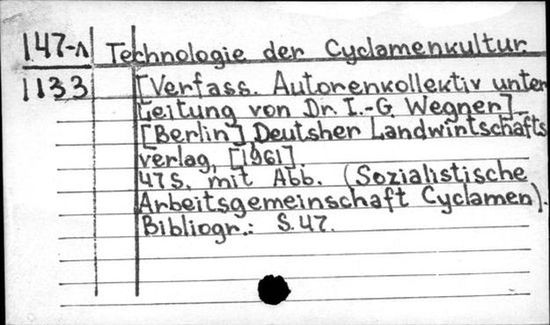 147-Λ Technologie der Cyclamenkultur
1133 [Verfass. Autorenkollektiv unter
Leitung von Dr. I.-G. Wegner]
[Berlin] Deutsher Landwirtschafts
verlag, [1961].
47 S. mit Abb. (Sozialistische
Arbeitsgemeinschaft Cyclamen).
Bibliogr.: S. 47.